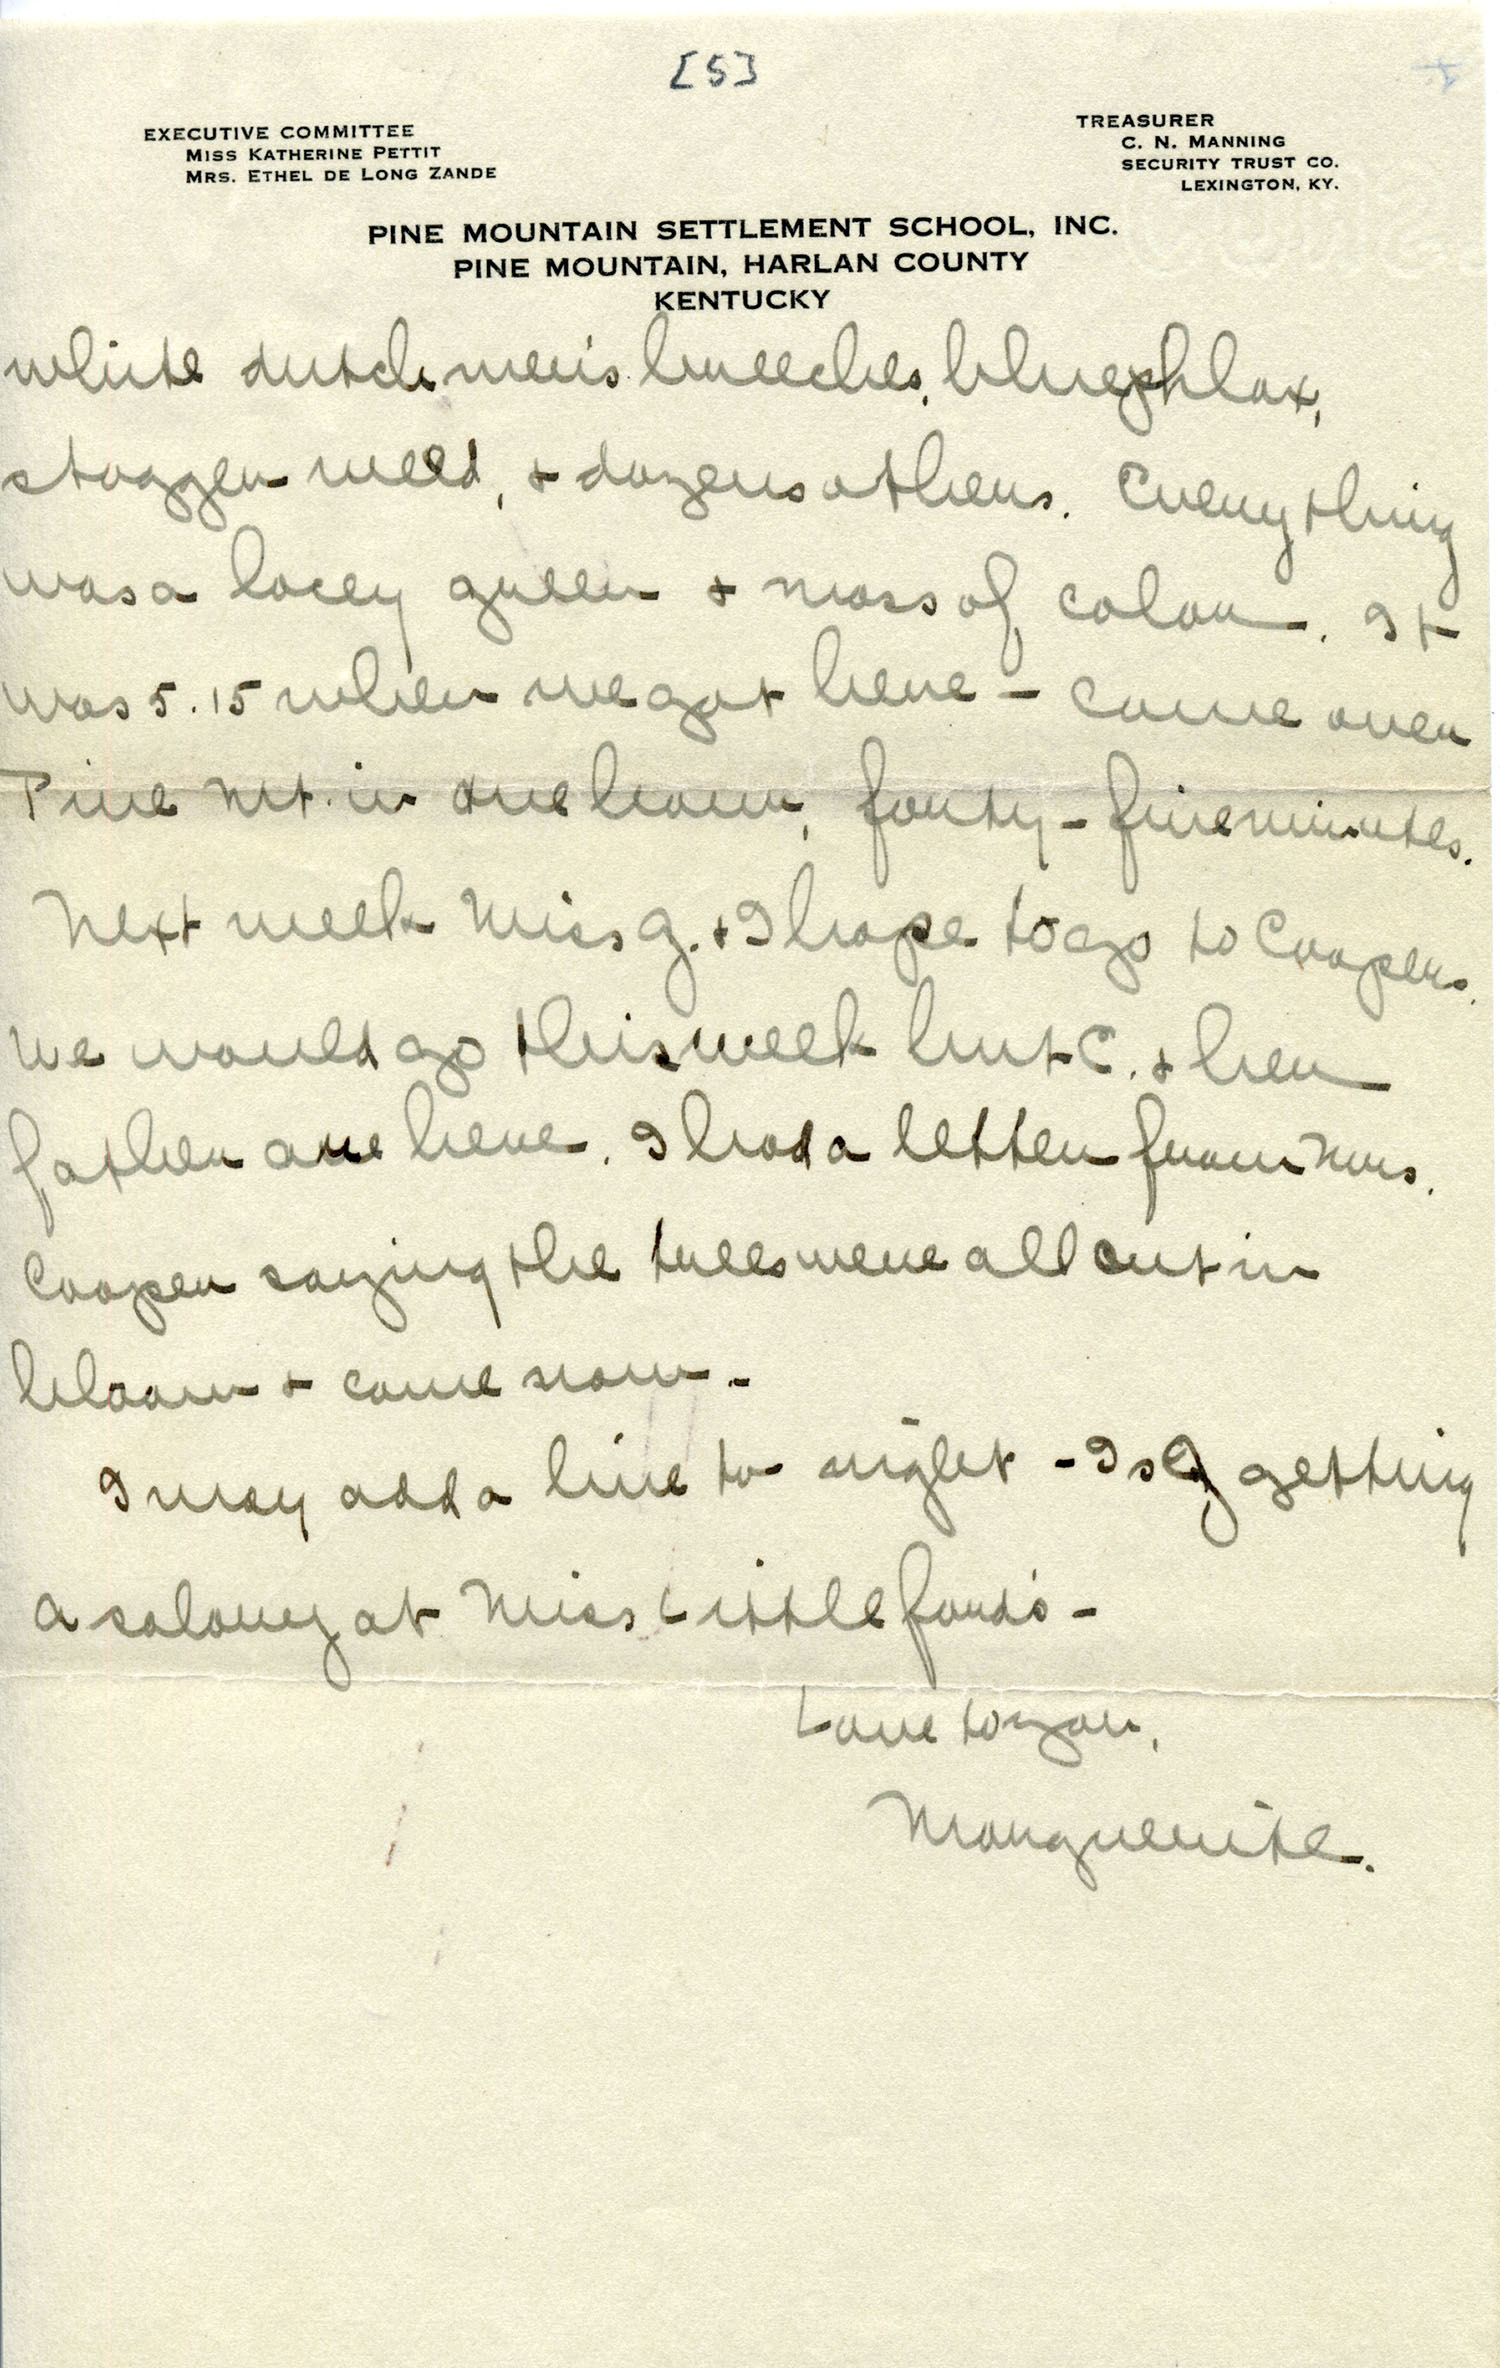 [5]
EXECUTIVE COMMITTEE
MISS KATHERINE PETTIT
MRS. ETHEL DE LONG ZANDE
TREASURER
C. N. MANNING
SECURITY TRUST CO.
LEXINGTON, KY.
PINE MOUNTAIN SETTLEMENT SCHOOL, INC.
PINE MOUNTAIN, HARLAN COUNTY
KENTUCKY
white dutchmen's breeches, blue phlox,
stagger weed, & dozens others. Everything
was a lacey green & mass of color. It
was 5.15 when we got here – came over
Pine Mt. in one hour, forty-five minutes.
Next week Miss G. & I hope to go to Coopers.
We would go this week but C. & her
father are here. I had a letter from Mrs.
Cooper saying the trees were all out in
bloom & come now. -
I may add a line to night - Is G getting
a salary at Miss Littleford's -
Love to you,
Marguerite.